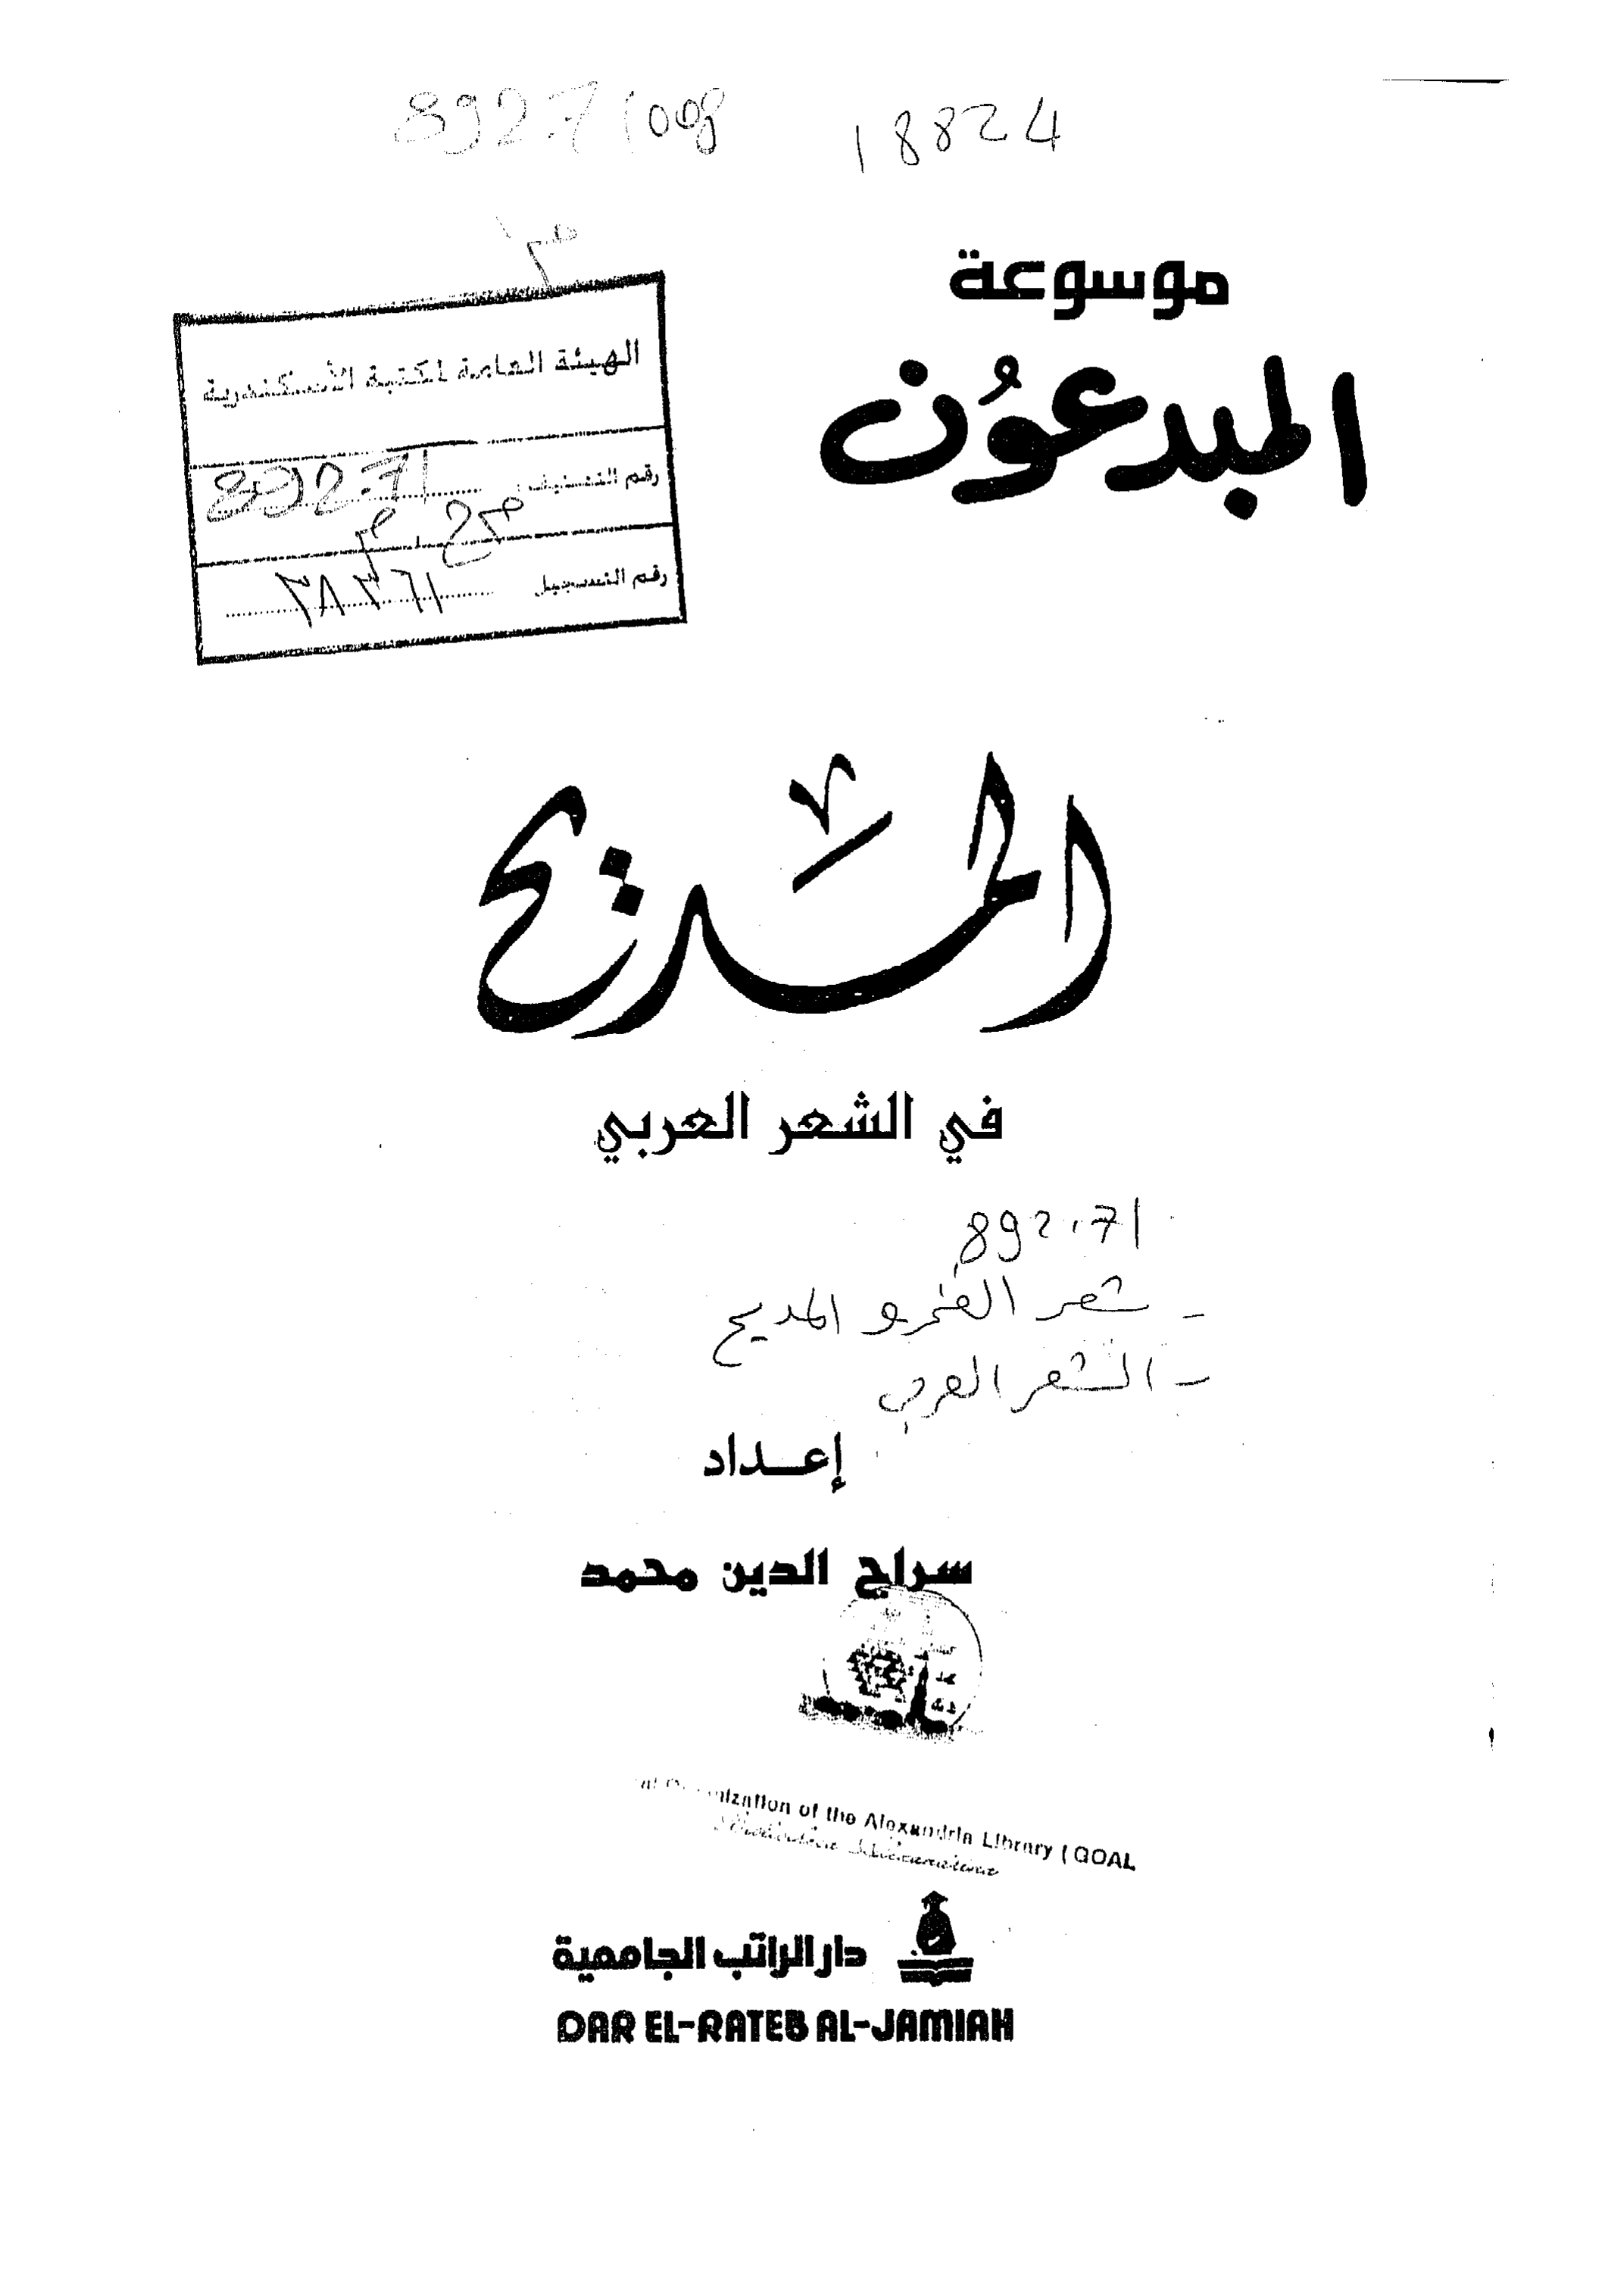 18824
موسوعة
المبدعون
الهيئة العامة لمكتبة الأسكندرية
رقم التصنيف 892.71
رقم التسجيل ٣٨٣٦١
المديح
في الشعر العربي
892.71
- شعر الفخر و المديح
- الشعر العربي
إعداد
سراج الدين محمد
Organization of the Alexandria Library (GOAL
Bibliotheca Alexandrina
دار الراتب الجامعية
DAR EL-RATEB AL-JAMIAH